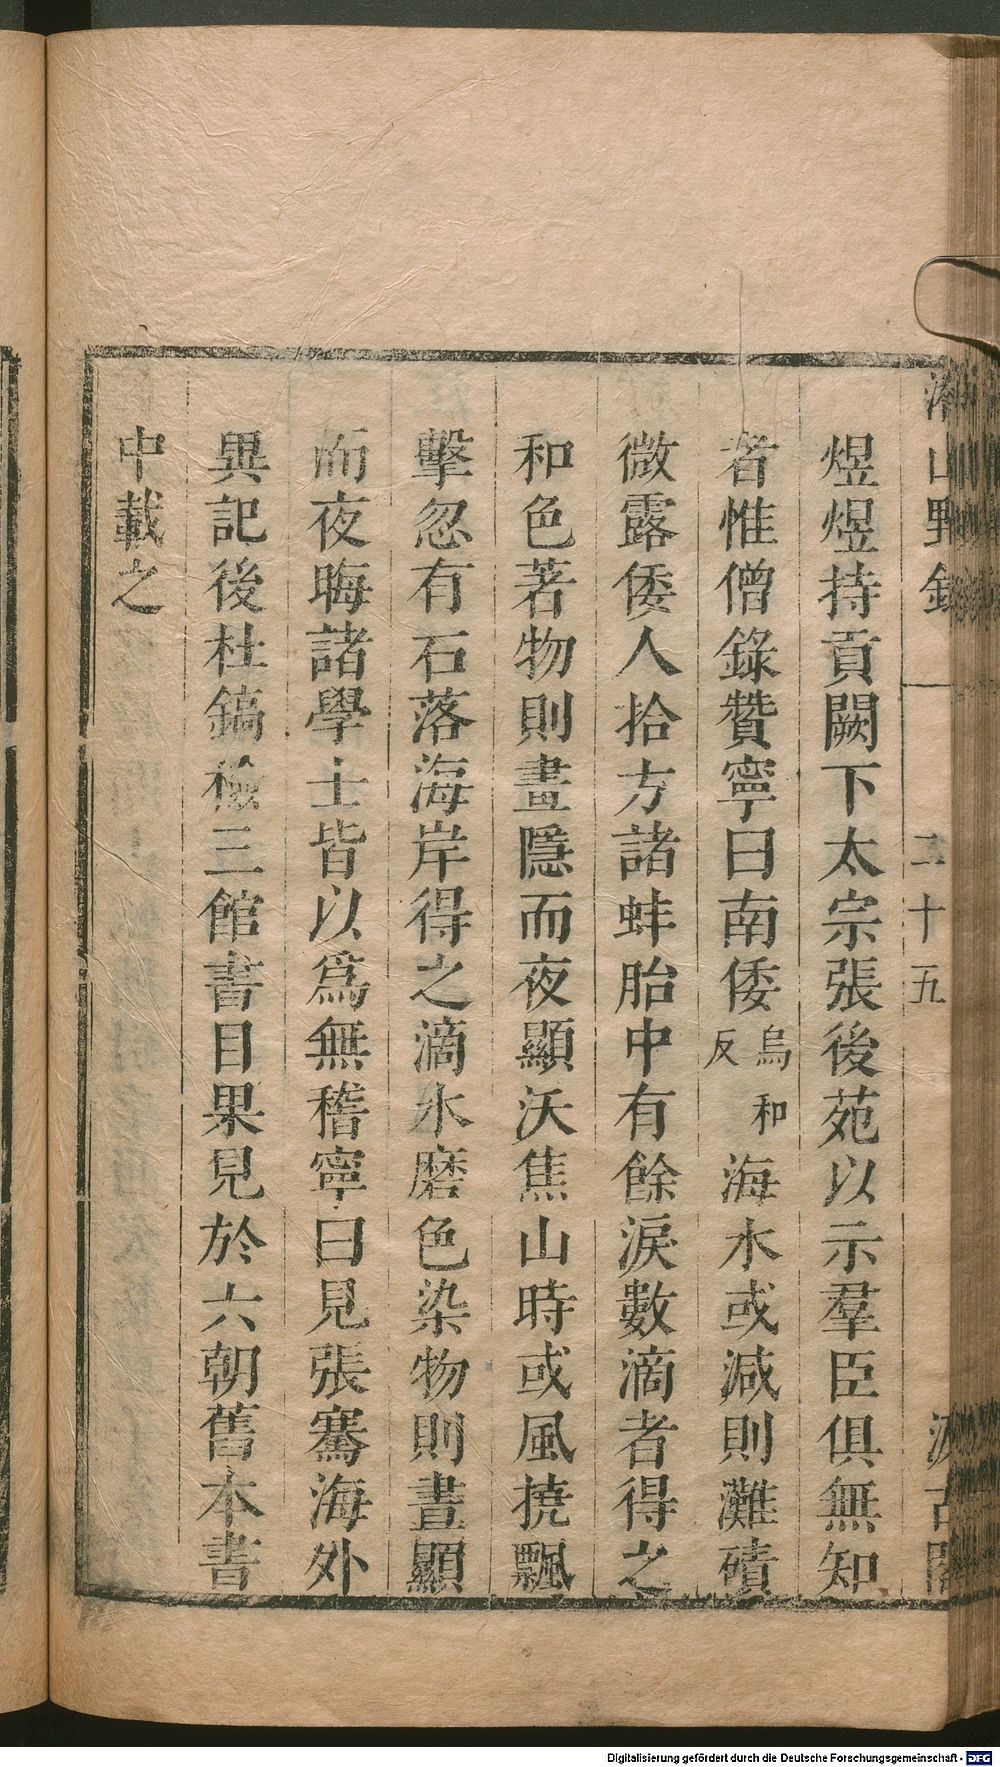 湘山野錄 二十五 汲古閣
煜煜持貢闕下太宗張後苑以示羣臣俱無知
者惟僧錄贊寧曰南倭烏和反海水或減則灘磧
微露倭人拾方諸蚌胎中有餘淚數滴者得之
和色著物則畫隱而夜顯沃焦山時或風撓飄
擊忽有石落海岸得之滴水磨色染物則晝顯
而夜晦諸學士皆以爲無稽寧曰見張騫海外
異記後杜鎬檢三館書目果見於六朝舊本書
中載之
Digitalisierung gefördert durch die Deutsche Forschungsgemeinschaft - DFG